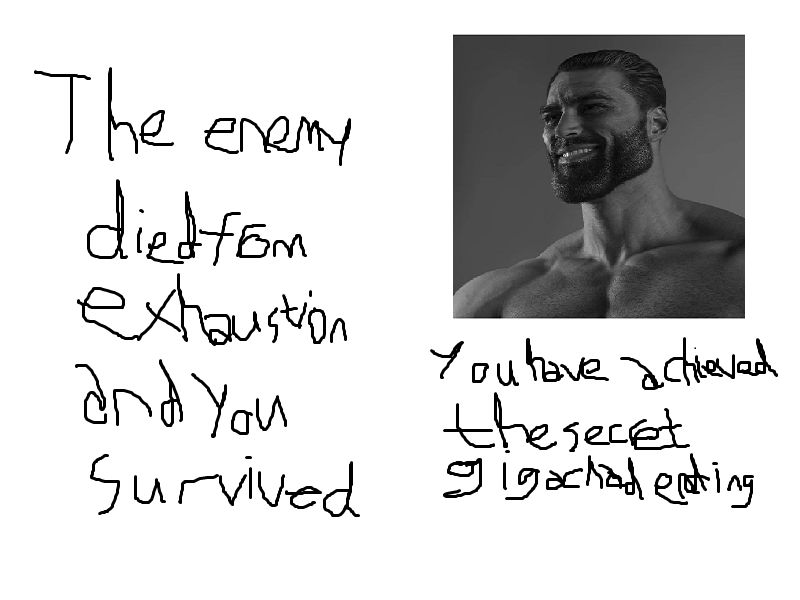 The enemy
died from
exhaustion
and you
survived
You have achieved
the secret
gigachad ending